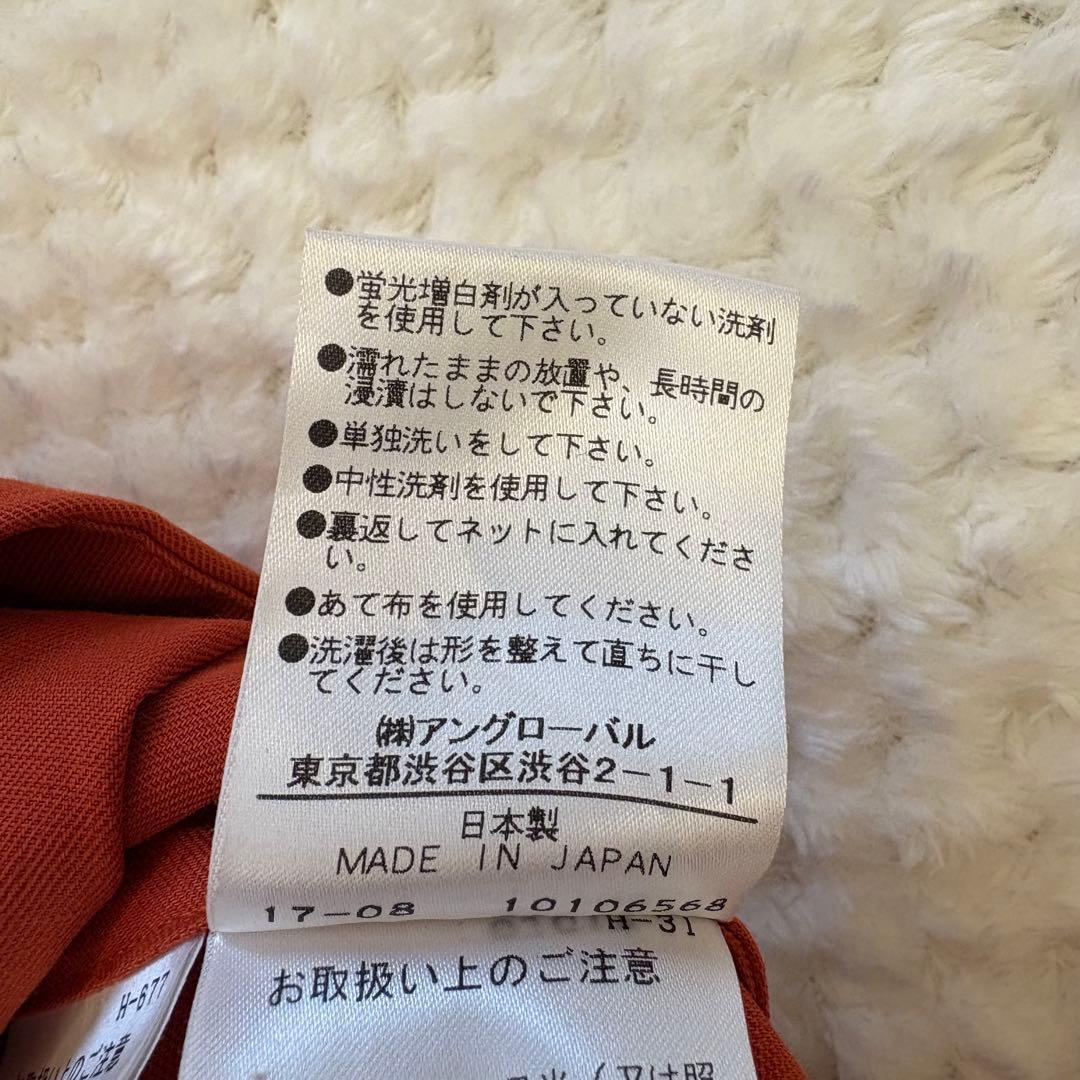 ●蛍光増白剤が入っていない洗剤
を使用して下さい。
●濡れたままの放置や、長時間の
浸漬はしないで下さい。
●単独洗いをして下さい。
●中性洗剤を使用して下さい。
●裏返してネットに入れてくださ
い。
●あて布を使用してください。
●洗濯後は形を整えて直ちに干し
てください。
㈱アングローバル
東京都渋谷区渋谷2-1-1
日本製
MADE IN JAPAN
17-08 10106568
H-31
お取扱い上のご注意
(又は照
H-677
お取扱い上のご注意